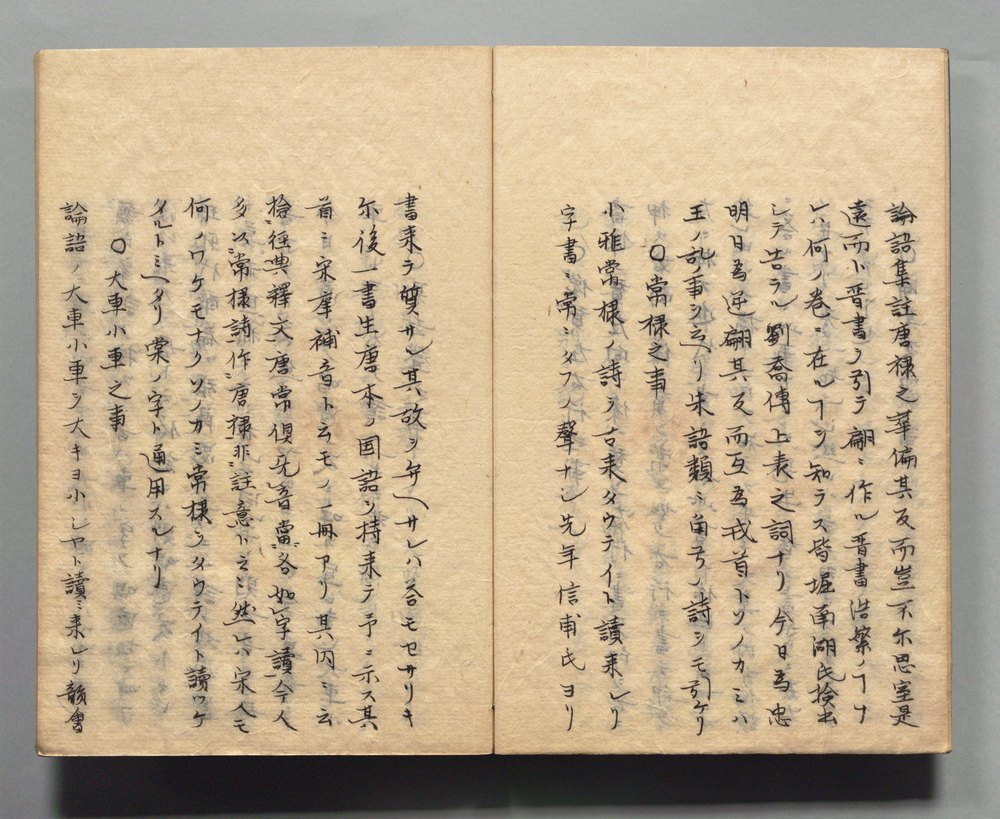 論語集註唐棣之華偏其反而豈不尓思室是
遠而ト晋書ヲ引テ翩ニ作ル晋書浩繁ノヿナ
レハ何ノ巻ニ在ルヿヲ知ラス皆堀南湖氏捡出
シテ告ラル劉喬傳上表之詞ナリ今日為忠
明日為逆翩其反而互為戎首トソノカミハ
王ノ乱ノ事ヲ云ヘリ朱語類ニ角弓ノ詩ヲモ引ケリ
〇常棣之事
小雅常棣ノ詩ヲ古来タウテイト讀来レリ
字書ニ常ニタフノ聲ナシ先年信甫氏ヨリ
書来テ質サル其故ヲ弁ヘサレハ答モセサリキ
尓後一書生唐本ノ国語ヲ持来テ予ニ示ス其
首ニ宋庠補音ト云モノ一冊アリ其内ニ云
捡経典釋文唐常倶旡音當各如字讀今人
多以常棣詩作唐棣非註意トアリ然レハ宋人モ
何ノワケモナクソノカミ常棣ヲタウテイト讀ワケ
タルトミヘタリ棠ノ字ト通用スルナリ
〇大車小車之事
論語ノ大車小車ヲ大キヨ小シヤト讀ミ来レリ韻會